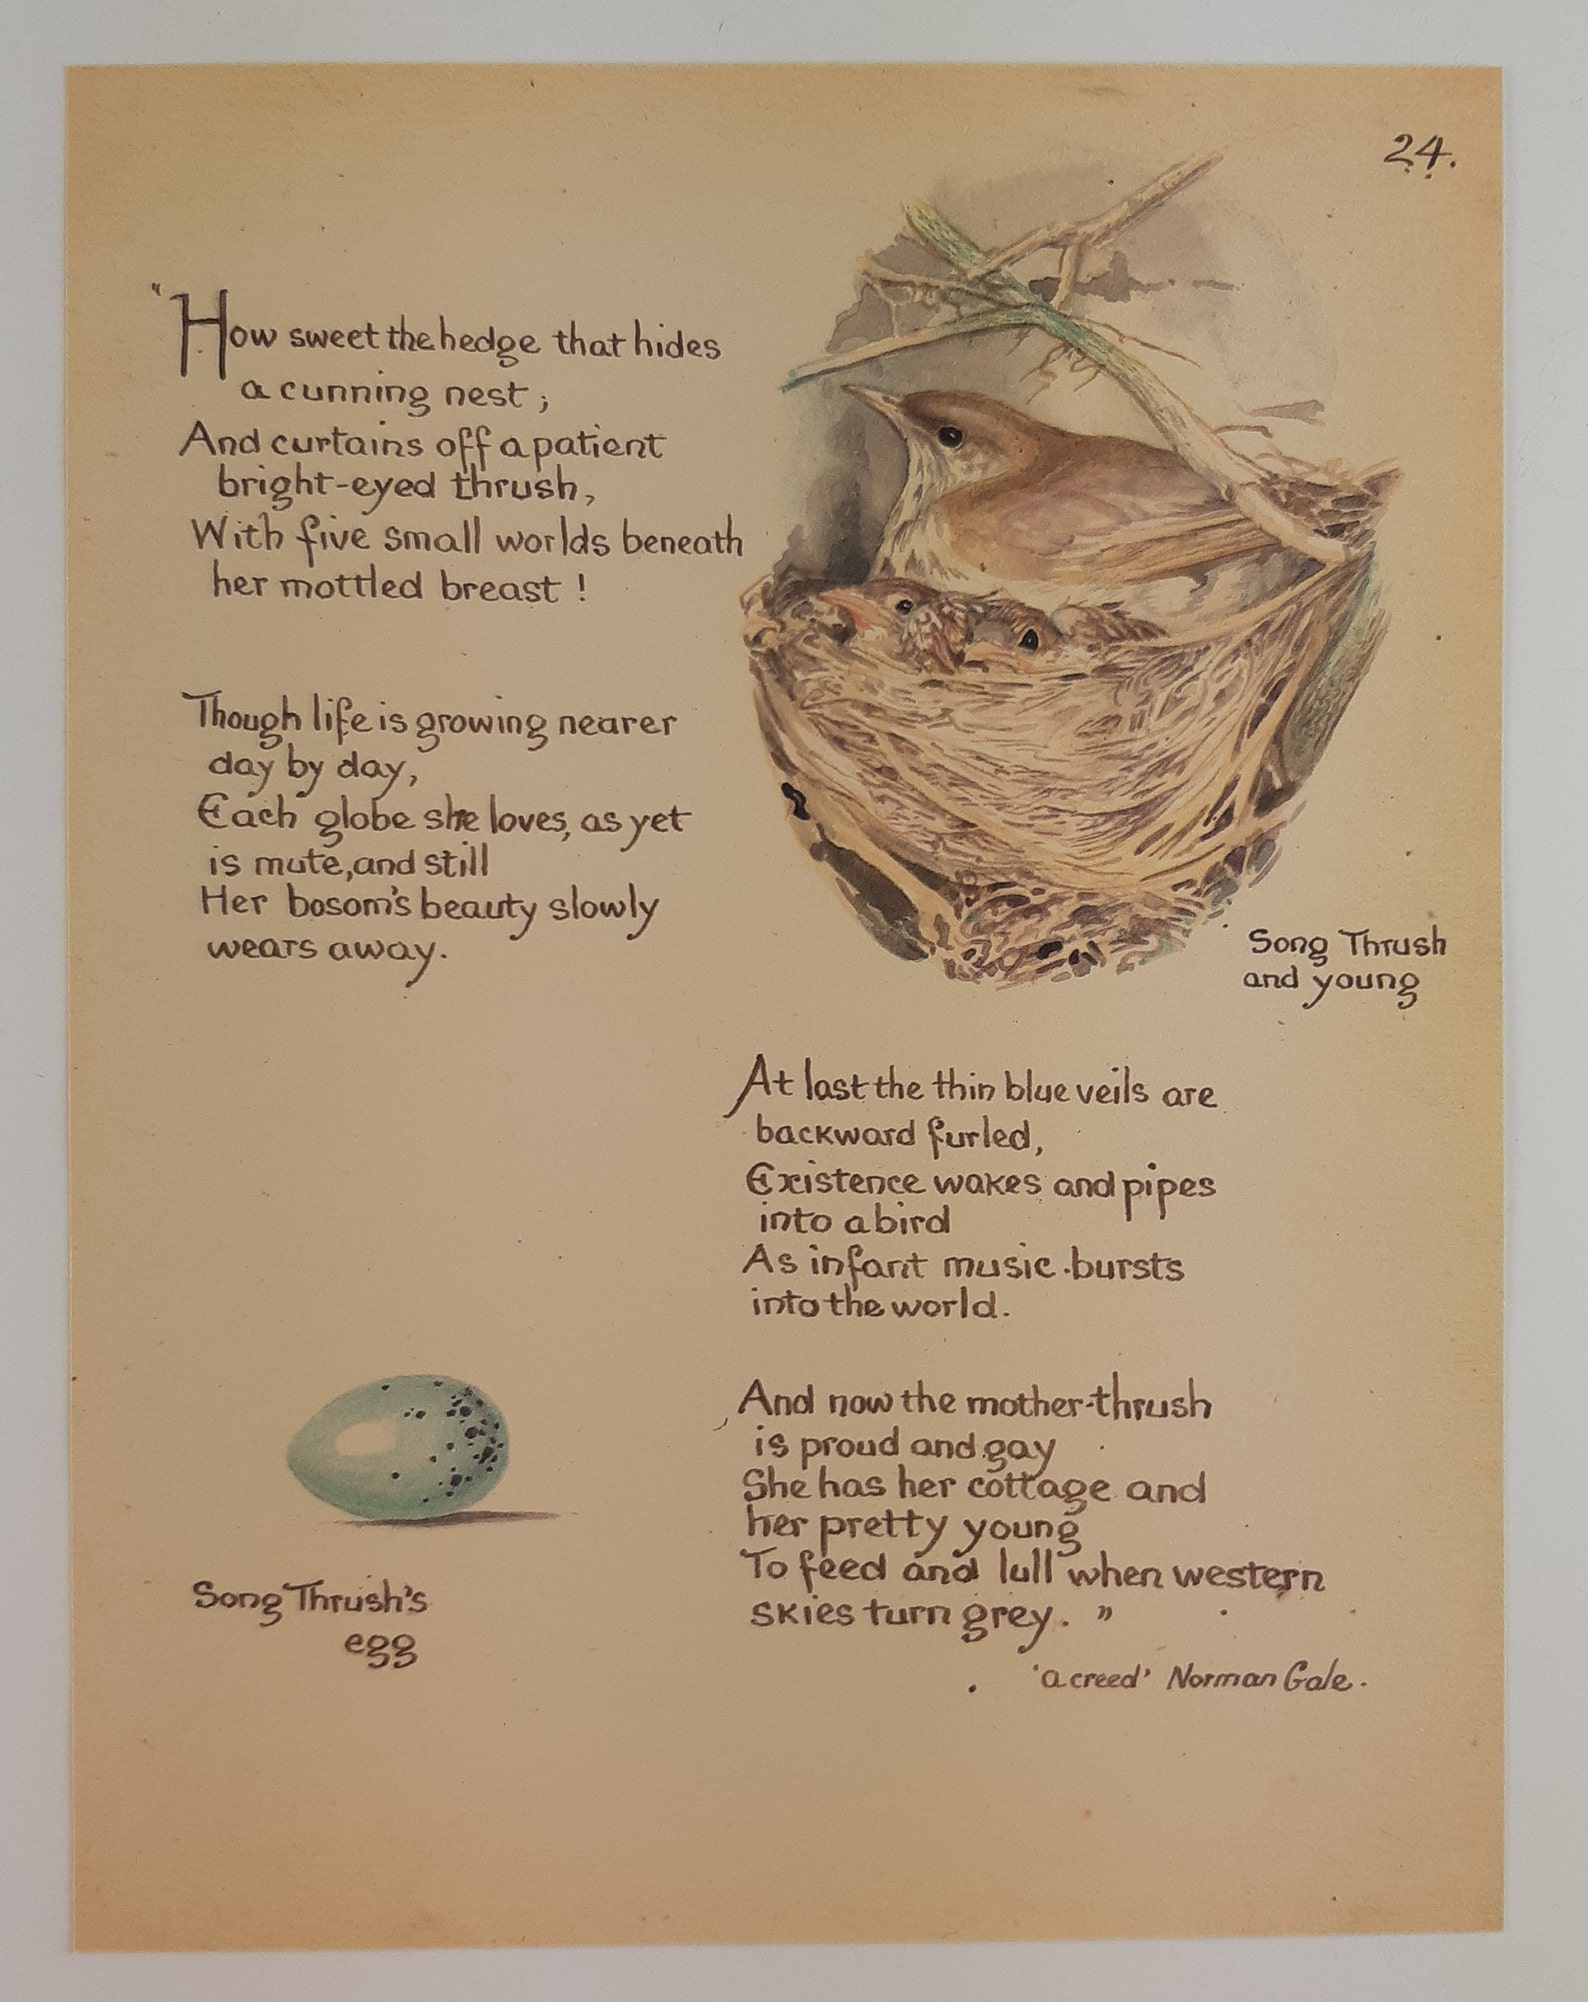 24.
"How sweet the hedge that hides
a cunning nest;
And curtains off a patient
bright-eyed thrush,
With five small worlds beneath
her mottled breast!
Though life is growing nearer
day by day,
Each globe she loves, as yet
is mute, and still
Her bosom's beauty slowly
wears away.
Song Thrush
and young
At last the thin blue veils are
backward furled,
Existence wakes and pipes
into a bird
As infant music bursts
into the world.
And now the mother-thrush
is proud and gay
She has her cottage and
her pretty young
To feed and lull when western
skies turn grey."
'a creed' Norman Gale.
Song Thrush's
egg